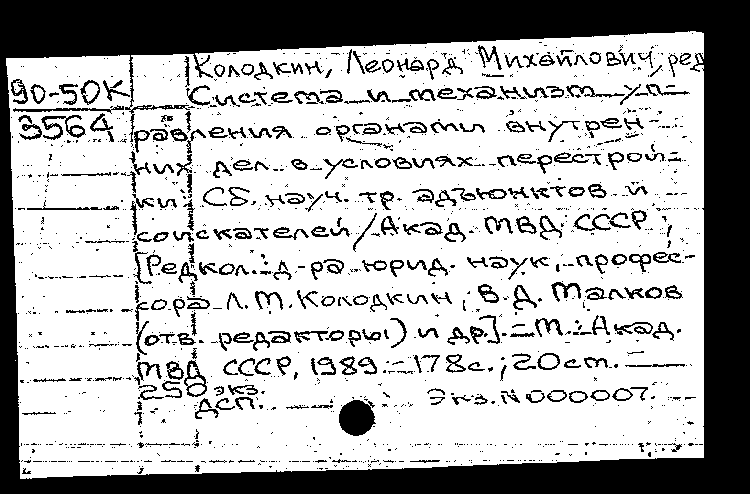 Колодкин, Леонард Михайлович, ред
90-50К
Система и механизм уп-
3564
равления органами внутрен-
них дел в условиях перестрой-
ки: Сб. науч. тр. адъюнктов и
соискателей / Акад. МВД СССР ;
[Редкол.: д-ра юрид. наук, профес-
сора Л.М. Колодкин, В.Д. Малков
(отв. редакторы) и др.]. - М.: Акад.
МВД СССР, 1989. - 178с.; 20см.
250 экз.
ДСП. Экз. N 000007.